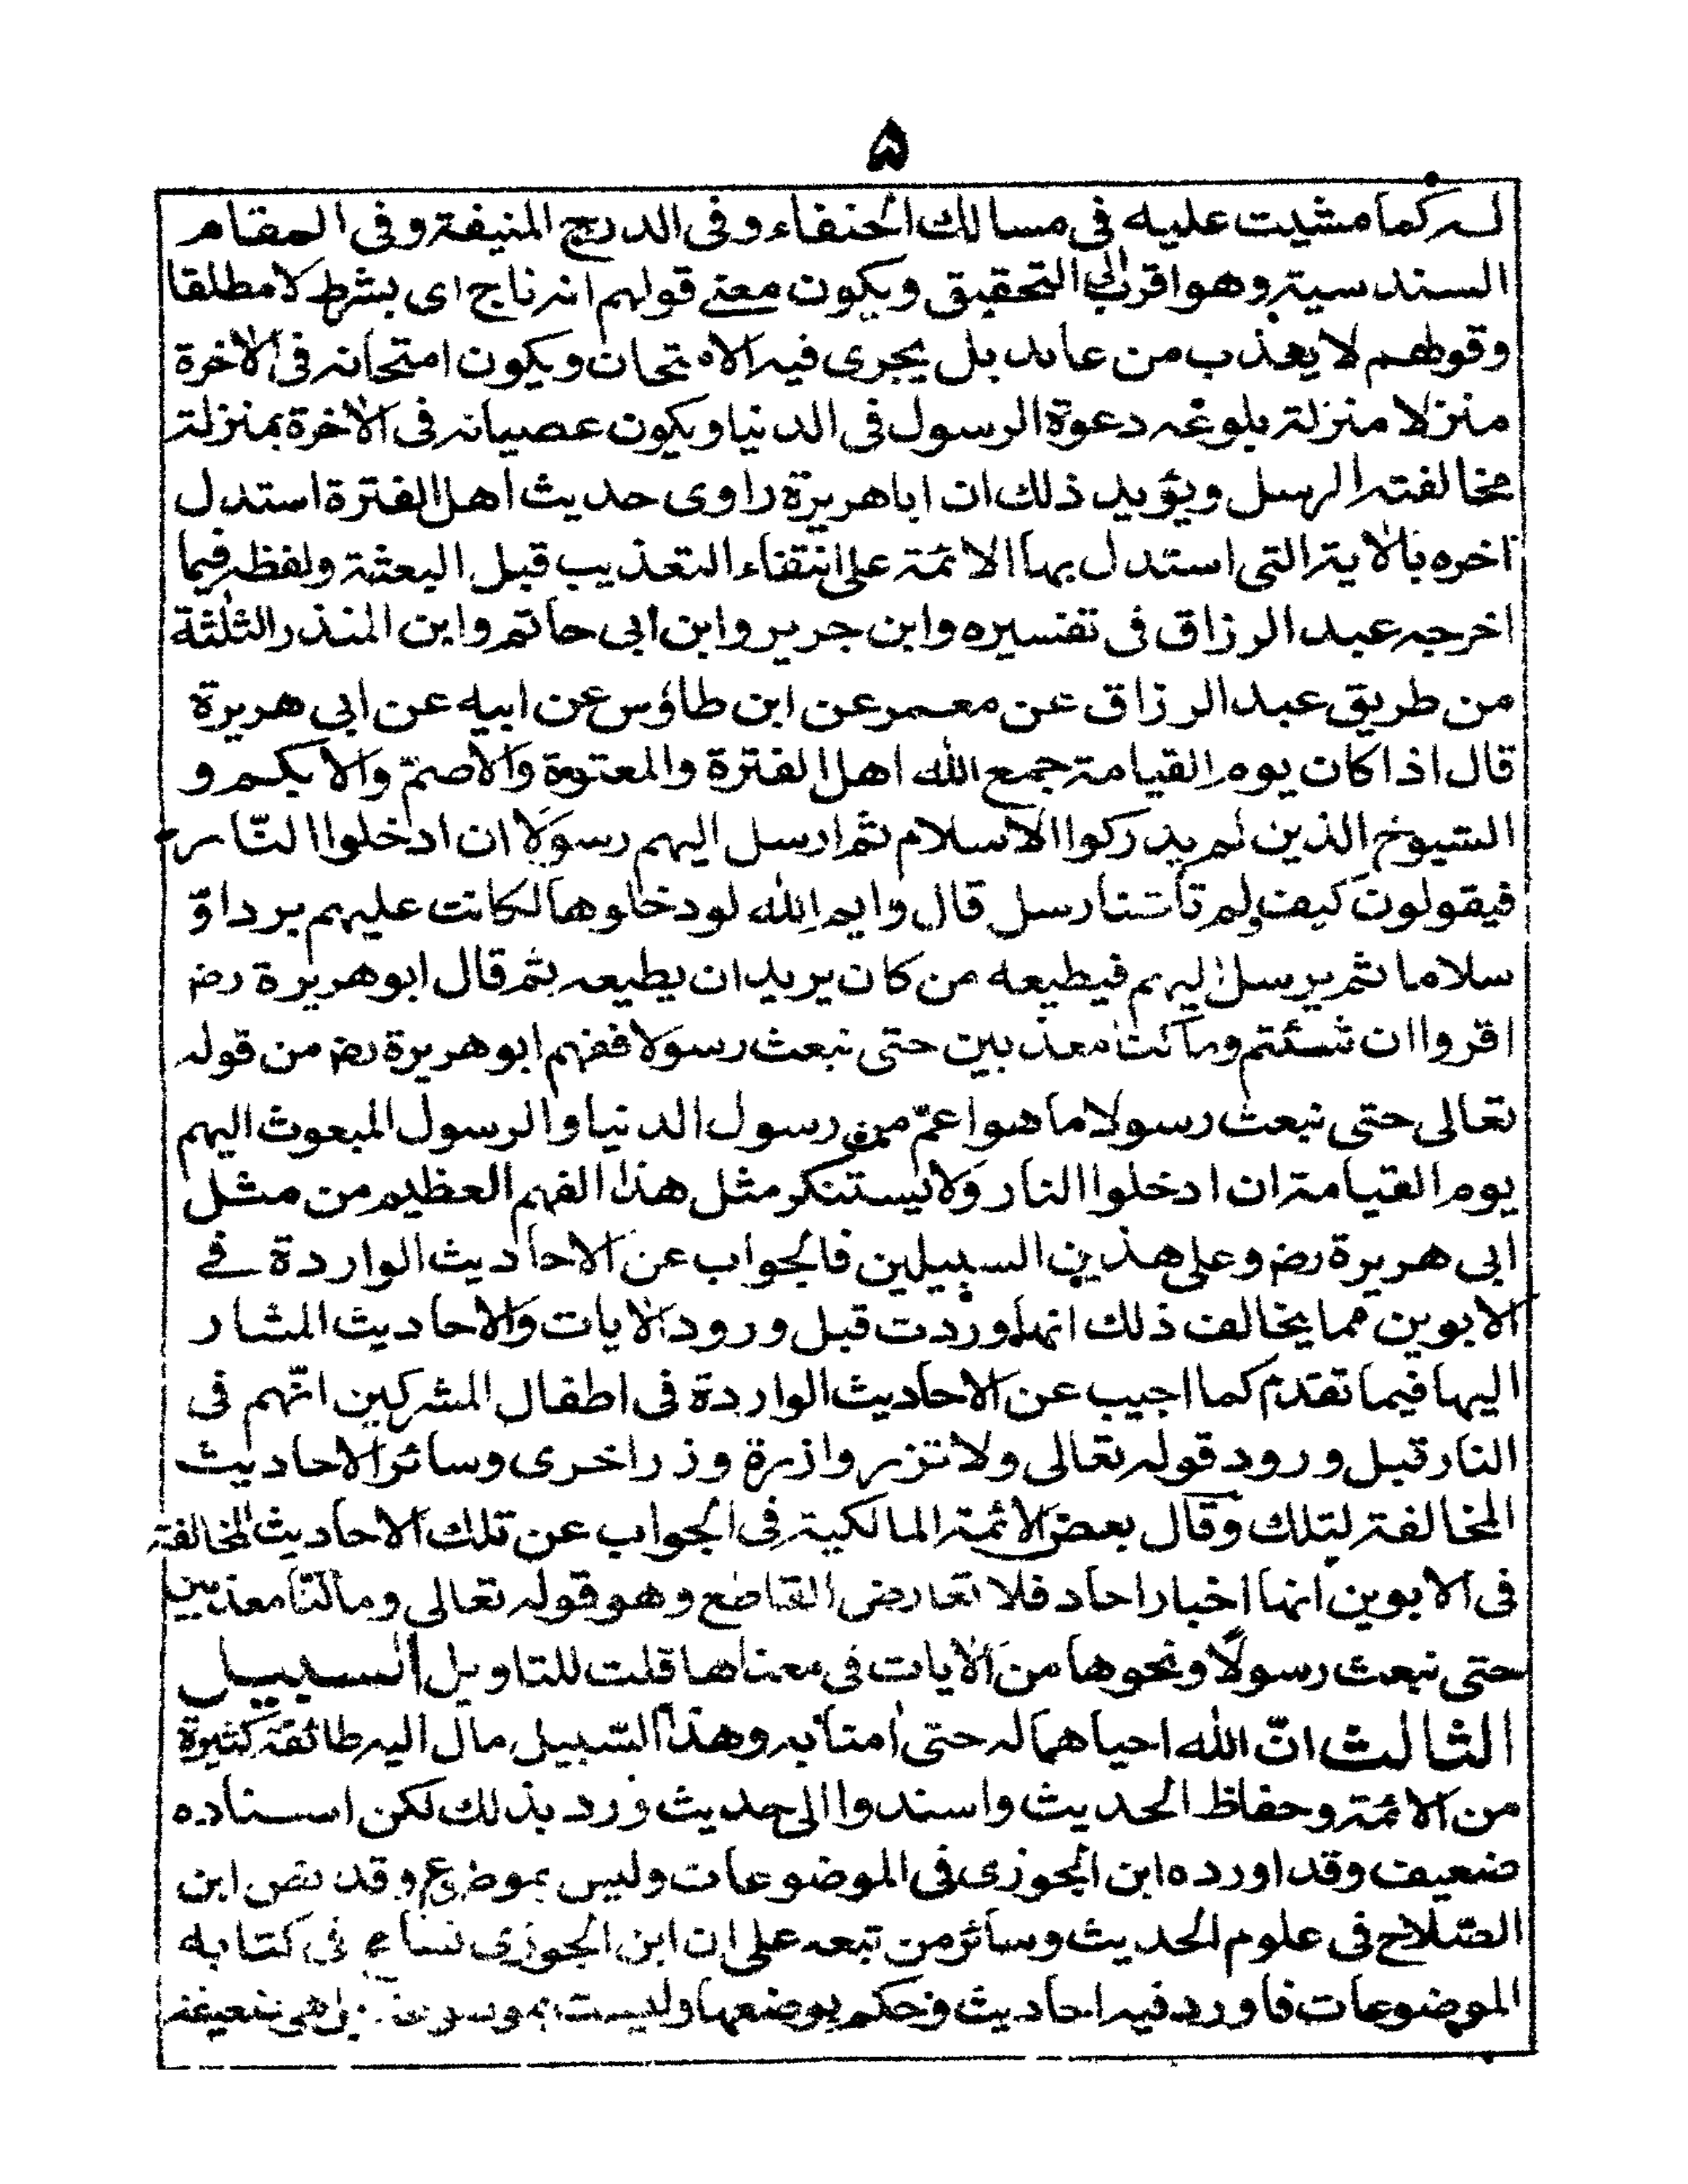 ۵
له كما مشيت عليه فى مسالك الحنفاء وفى الدرج المنيفة وفى المقام
السندسية وهو اقرب الى التحقيق ويكون معنے قولهم انه ناج اى بشرط لا مطلقا
وقولهم لا يعذب من عابد بل يجرى فيه الامتحان ويكون امتحانه فى الاخرة
منزلا منزلة بلوغه دعوة الرسول فى الدنيا ويكون عصيانه فى الاخرة بمنزلة
مخالفته الرسل ويؤيد ذلك ان اباهريرة راوى حديث اهل الفترة استدل
اخره بالاية التى استدل بها الائمة على انتفاء التعذيب قبل البعثة ولفظه فيما
اخرجه عبد الرزاق فى تفسيره وابن جرير وابن ابى حاتم وابن المنذر الثلثة
من طريق عبد الرزاق عن معمر عن ابن طاؤس عن ابيه عن ابى هريرة
قال اذا كان يوم القيامة جمع الله اهل الفترة والمعتوة والاصمّ والابكم و
الشيوخ الذين لم يدركوا الاسلام ثم ارسل اليهم رسولا ان ادخلوا النّار
فيقولون كيف ولم تأتنا رسل قال وايم الله لو دخلوها لكانت عليهم برداوّ
سلاما ثم يرسل اليهم فيطيعه من كان يريد ان يطيعه ثم قال ابو هريرة رضؓ
اقروا ان شئتم وما كنا معذبين حتى نبعث رسولا ففهم ابو هريرة رضؓ من قوله
تعالى حتى نبعث رسولا ما هو اعمّ من رسول الدنيا والرسول المبعوث اليهم
يوم القيامة ان ادخلوا النار ولا يستنكر مثل هذا الفهم العظيم من مثل
ابى هريرة رضؓ وعلى هذين السبيلين فالجواب عن الاحاديث الواردة فے
الابوين مما يخالف ذلك انها وردت قبل ورود الايات والاحاديث المشار
اليها فيما تقدم كما اجيب عن الاحاديث الواردة فى اطفال المشركين انّهم فى
النار قبل ورود قوله تعالى ولا تزر وازرة وزر اخرى وسائر الاحاديث
المخالفة لتلك وقال بعض الائمة المالكية فى الجواب عن تلك الاحاديث المخالفة
فى الابوين انها اخبار احاد فلا تعارض القاطع وهو قوله تعالى وما كنا معذبين
حتى نبعث رسولًا ونحوها من الايات فى معناها قلت للتاويل السبيل
الثالث انّ الله احياهما له حتى امنا به وهذا السّبيل مال اليه طائفة كثيرة
من الائمة وحفاظ الحديث واسندوا الى حديث ورد بذلك لكن اسناده
ضعيف وقد اورده ابن الجوزى فى الموضوعات وليس بموضوع وقد نص ابن
الصّلاح فى علوم الحديث وسائر من تبعه على ان ابن الجوزى تسامح فى كتابه
الموضوعات فاورد فيه احاديث وحكم بوضعها وليست هى ضعيفة